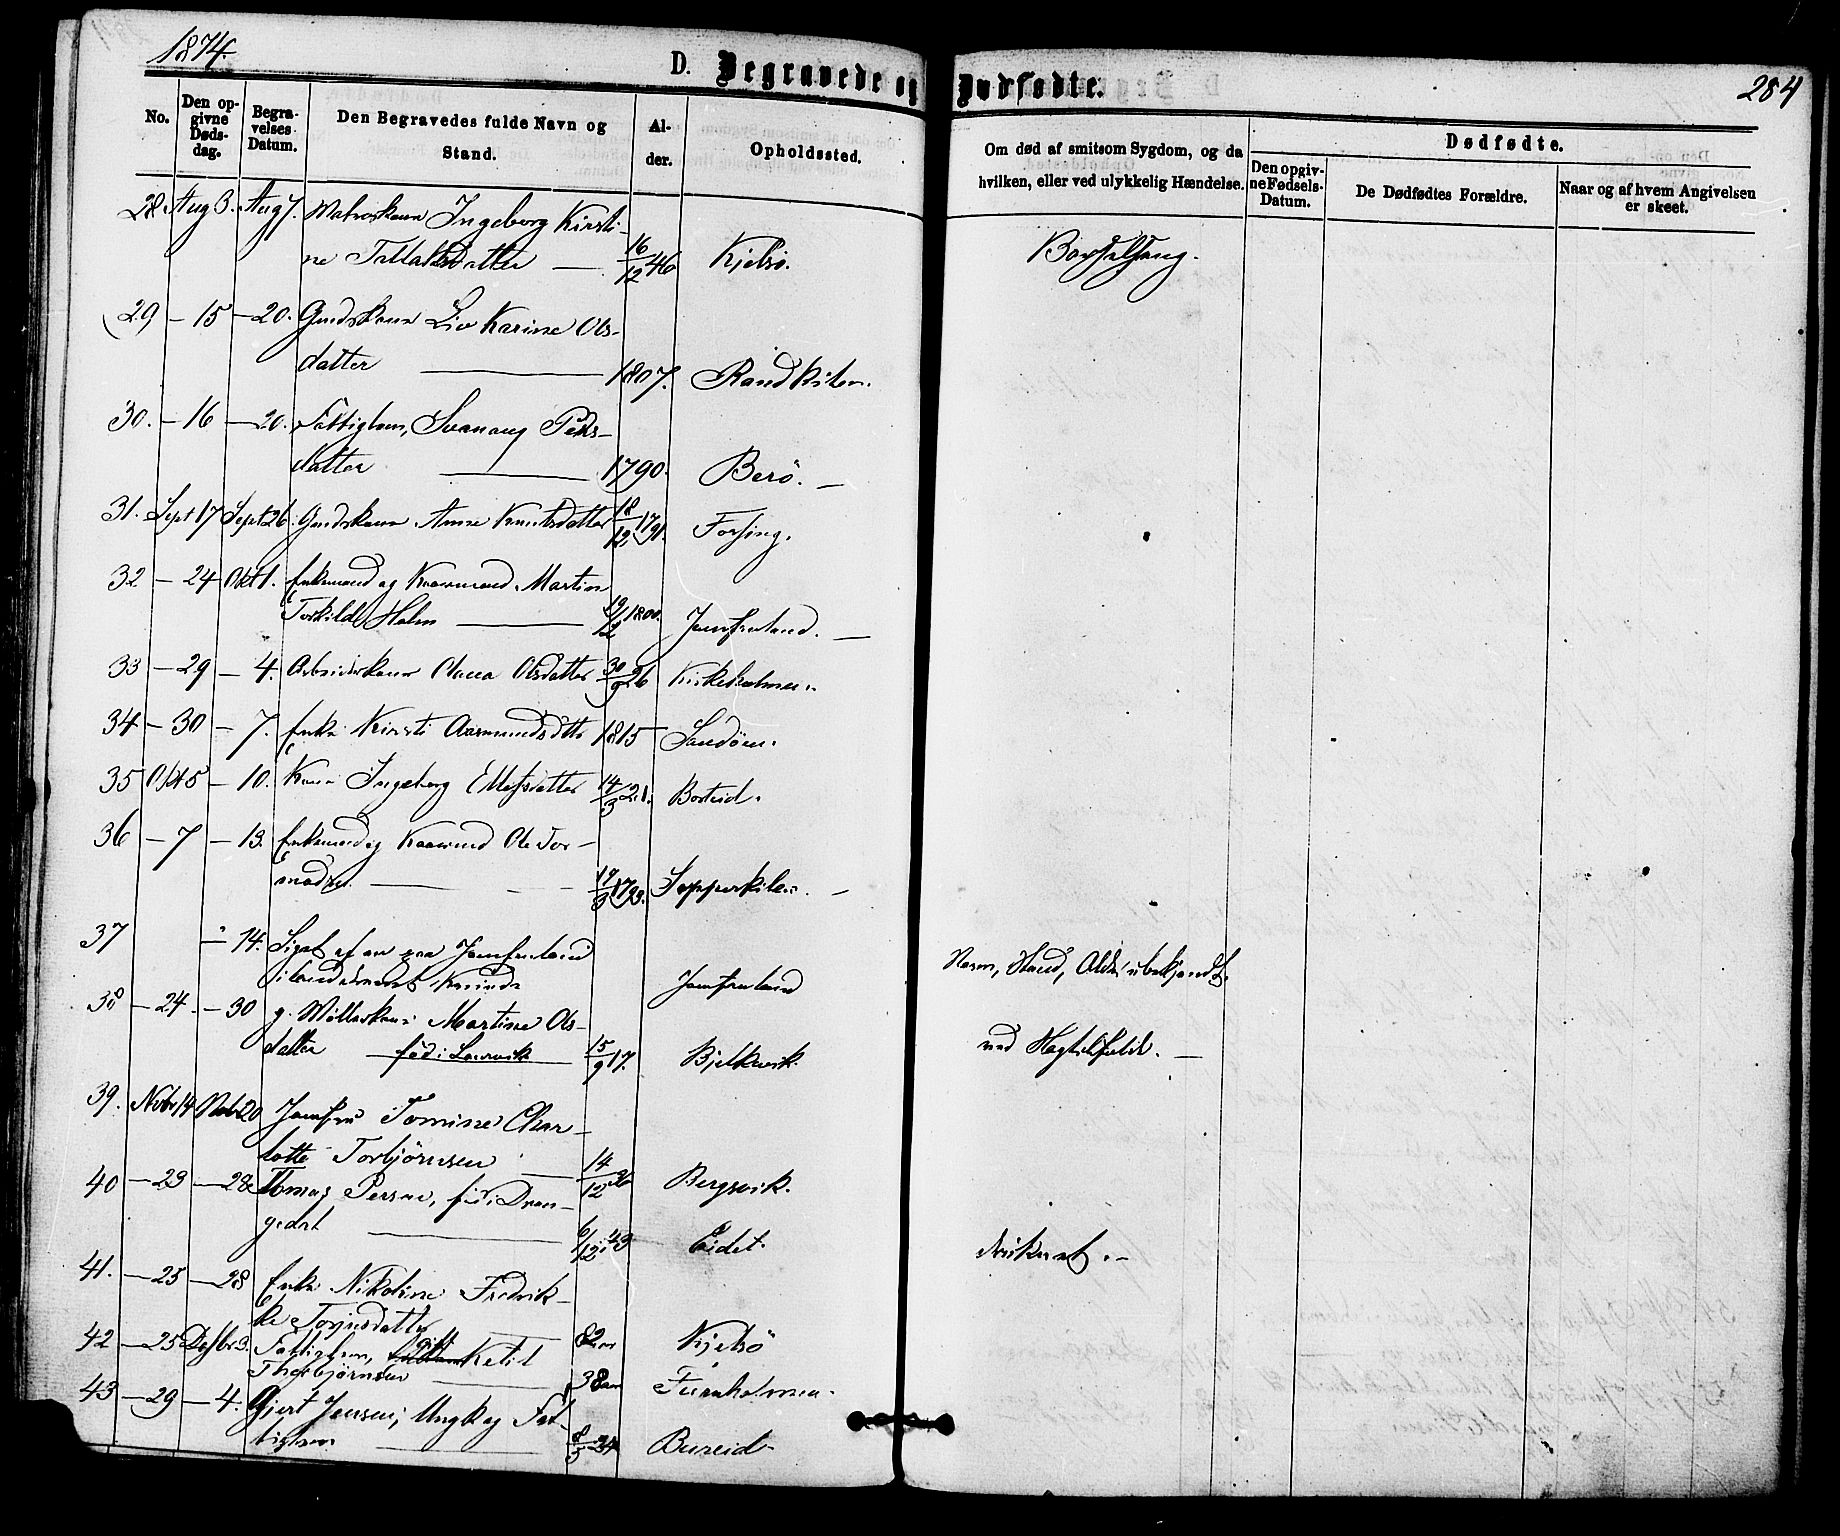 1874.
D. Begravede og Dødfødte.
284
No.
Den op-
givne
Døds-
dag.
Begra-
velses
Datum.
Den Begravedes fulde Navn og
Stand.
Al-
der.
Opholdssted.
Om død af smitsom Sygdom, og da
hvilken, eller ved ulykkelig Hændelse.
Dødfødte.
Den opgiv-
ne Fødsels-
Datum.
De Dødfødtes Forældre.
Naar og af hvem Angivelsen
er skeet.
28. Aug 3. Aug 7. Matroskone Ingeborg Kirsti-
ne Tallaksdatter — 16/12 46 Kjelsø. Barselseng.
29 — 15 — 20. Gmdskone Liv Karine Ols-
datter — 1807. Randkilen.
30. — 16 — 20. Fattiglem, Svanaug Peders-
datter — 1790. Berø. —
31. Sept 17 Sept 26. Gmdskone Anne Knutsdatter 18/12 1791. Forsing.
32 — 24 Okt 1. Enkemand og Kaarmand Martin
Torkilds Holm — 19/12 1800. Jomfruland. —
33 — 29 — 4. Arbeiderkone Olsdatter 30/9 26 Kirkeholmen.
34 — 30 — 7. Enke Kirsti Aasmundsdtr 1815 Sandøen.
35 Okt 5 — 10. Kone Ingeborg Ellefsdatter 14/3 21. Borteid.
36 — 7 — 13. Enkemand og Kaarmand Ole Tor-
modsen — 19/3 1793. Sopperkilen. —
37 — 14. Liget af en paa Jomfruland
ilanddrevet Kvinde Jomfruland Navn, Stand, Alder ubekjendt.
38 — 24. — 30 g. Møllerkone Martine Ols-
datter — fød i Laurvik 15/9 17. Bjelkevik. ved —
39. Novbr 14 Novbr 20 Jomfru Tomine Char-
lotte Torbjørnsen — 14/12 Bergsvik.
40 — 23 — 28 Tomas Persen, fød i Dran-
gedal — 6/12 43 Eidet. druknet. —
41. — 25 — 28 Enke Nikoline Fredrik-
ke Torjusdatter 82 aar Kjelsø
42 — 25 Decbr 3. Fattiglem, gift Ketil
Thorbjørnsen — 38 aar Furuholmen.
43 — 29 — 4. Gjert Jensen, Ungk og Fat-
tiglem — 8/5 34 Bureid